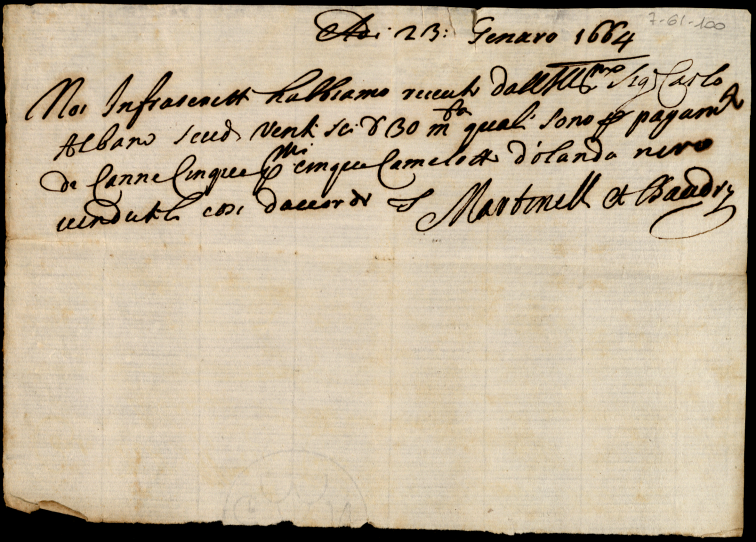 7-61-100
Adi 23: Genaro 1664
Noi Infrascritti habbiamo riceuti dall Ill.mo Sigr Carlo
Albano scudi venti sei d 30 m.ta quali sono p pagam.to
di Canne Cinque p.mi cinque Camelotto d'olanda nero
uenduttoli cosi daccordo Martinelli et Baudry